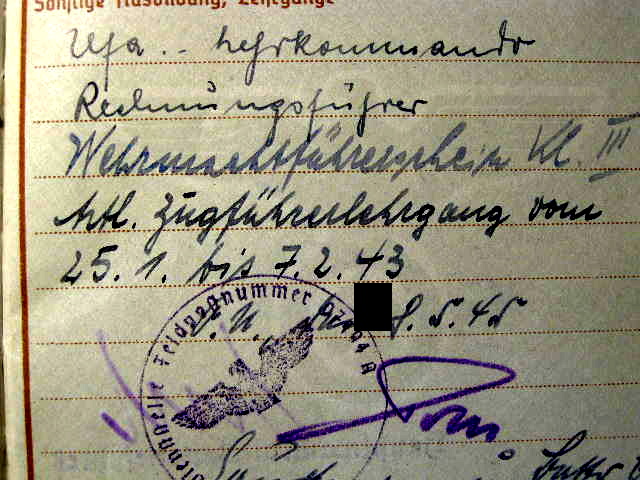 Sonstige Ausbildung, Lehrgänge
Ufa .. Lehrkommando
Rechnungsführer
Wehrmachtführerschein Kl. III
Artl. Zugführerlehrgang vom
25. 1. bis 7. 2. 43
O. U. den 8. 5. 45
Dienststelle Feldpostnummer